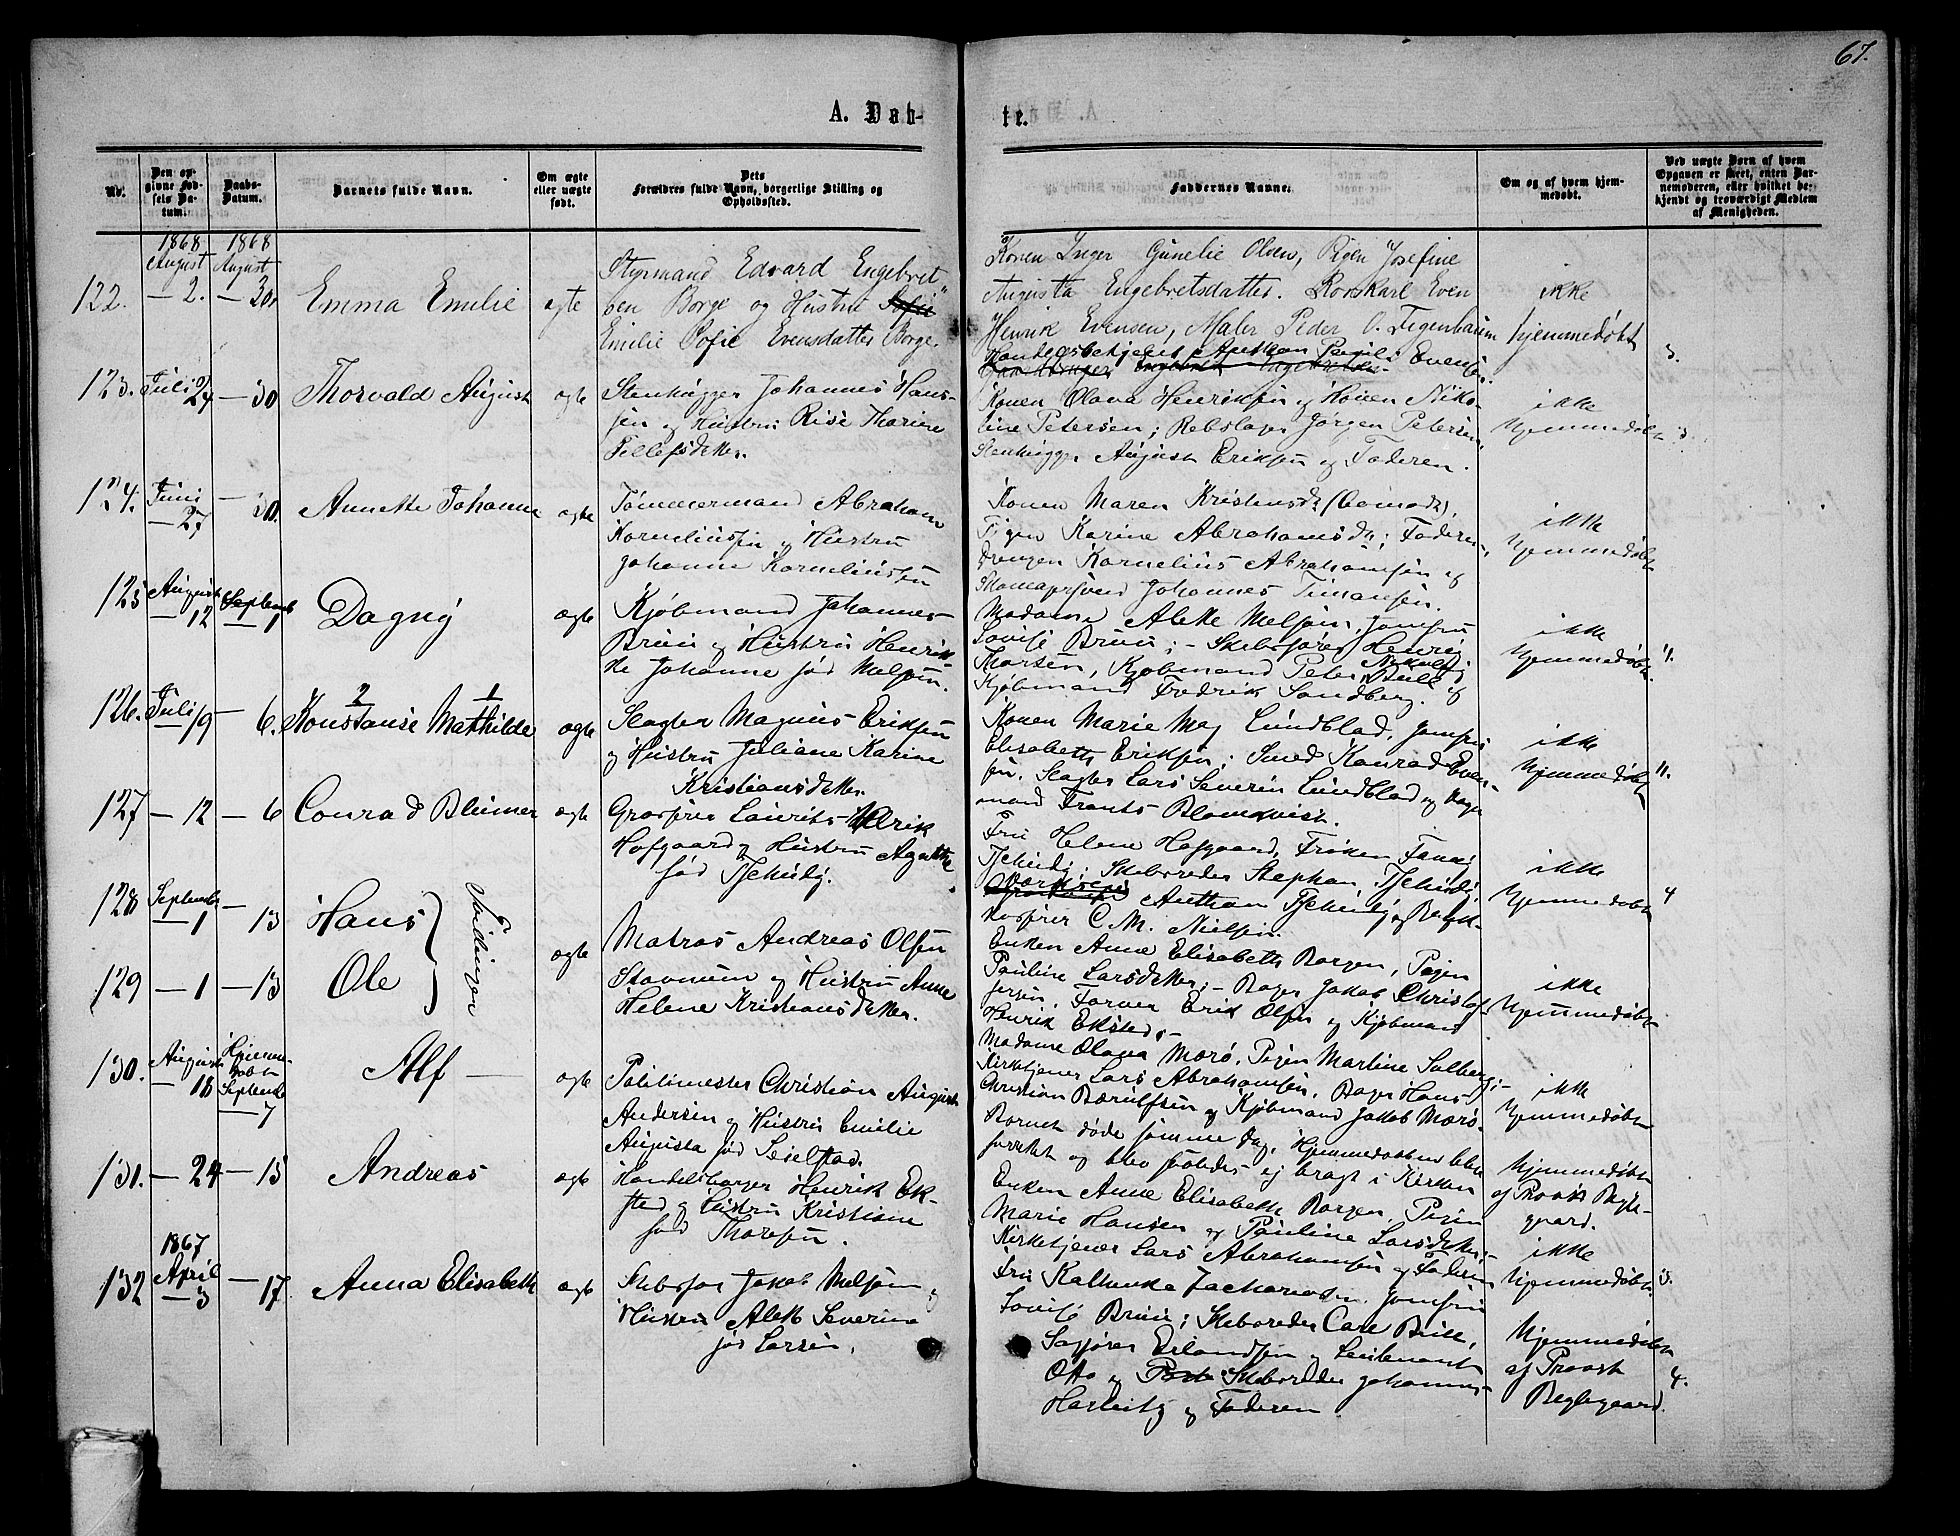 67.
A. Døb-
te.
No.
Den opgivne Fødsels Datum.
Daabs-Datum.
Barnets fulde Navn.
Om ægte eller uægte født.
Dets Forældres fulde Navn, borgerlige Stilling og Opholdssted.
Faddernes Navne.
Om og af hvem hjemmedøbt.
Ved uægte Børn af hvem Opgaven er skeet, enten Barnemoderen, eller hvilket bekjendt og troværdigt Medlem af Menigheden.
1868 1868
August August
122. — 2. — 30.
Emma Emilie
ægte
Styrmand Edvard Engebret-
sen Borge og Hustru Sofie
Emilie Sofie Evensdatter Borge.
Konen Inger Gunelie Olsen, Pigen Josefine
Augusta Engebretsdatter. Korskarl Even
Henrik Evensen, Maler Peder O. Tegenbaum
Evensen.
ikke
hjemmedøbt
3.
123. Juli 24 — 30
Thorvald August
ægte
Stenhugger Johannes Han-
sen og Hustru Risé Marine
Tellefsdtter.
Konen Olava Henriksen og Konen Niko-
line Petersen; Rebslager Jørgen Petersen,
Stenhugger August Eriksen og Faderen.
ikke
hjemmedøbt
3.
124. Juni — 27 — 30.
Annette Johanne
ægte
Tømmermand Abraham
Korneliussen og Hustru
Johanne Korneliussen
Konen Maren Kristensdt.
Pigen Karine Abrahamsdt; Faderen,
Drengen Kornelius Abrahamsen og
Skomagersvend Johannes Timansen.
ikke
hjemmedøbt
125 August — 12 Septemb — 1
Dagny
ægte
Kjøbmand Johannes
Bruu og Hustru Henrik-
ke Johanne fød Melsom.
Madame Alette Melsom, Jomfru
Lovise Bruu; — Skibsfører Henrig
Thorsen, Kjøbmand Peter Nikolai Bull og
Kjøbmand Fredrik Sandberg.
ikke
hjemmedøbt
4.
126. Juli 19 — 6.
2 1
Konstanse Mathilde
ægte
Slagter Magnus Eriksen
og Hustru Juliane Karine
Kristiansdtter.
Konen Marie Mag Lundblad, Jomfru
Elisabeth Eriksen; Smed Konrad Even-
sen, Slagter Lars Severin Lundblad og
mand Frants Blomkvist.
ikke
hjemmedøbt
4.
127 — 12 — 6
Conrad Blumer
ægte
Grosserer Laurits Ulrik
Hofgaard og Hustru Agathe
fød Tschudy.
Fru Helene Hofgaard, Frøken Fanny
Tschudy; Skibsreder Stephan Tschudi,
Anthon Tschudy og
C. M. Nielsen.
ikke
hjemmedøbt
4
128 Septemb — 1 — 13
Hans
Tvillinger
129 — 1 — 13
Ole
ægte
Matros Andreas Olsen
Stavnum og Hustru Anne
Helene Kristiansdtter.
Enken Anne Elisabeth Borgen, Pigen
Pauline Larsdtter; — Bager Jakob Christof-
fersen, Farver Erik Olsen og Kjøbmand
Henrik Eksted. —
ikke
hjemmedøbt
130. August — 18
Hjemme-
døbt
Septemb — 7
Alf —
ægte
Politimester Christian August
Andersen og Hustru Emilie
Augusta fød Seielstad.
Madame Olava Morø, Pigen Martine Solberg; —
Kirketjener Lars Abrahamsen, Bager Hans
Christian Børulfsen og Kjøbmand Jakob Morø.
Barnet døde samme Dag, Hjemmedaaben blev
forrettet og blev saaledes ej bragt i Kirken
ikke
hjemmedøbt
hjemmedøbt
af Provst Bugge-
gaard.
131. — 24 — 13
Andreas
ægte
Handelsborger Henrik Ek-
sted og Hustru Kristiane
fød Thoresen.
Enken Anne Elisabeth Borgen, Pigen
Marie Hansen og Pauline Larsdtter; —
Kirketjener Lars Abrahamsen og Faderen
ikke
hjemmedøbt.
3.
1867
132 April — 3 — 17.
Anna Elisabeth
ægte
Skibsfør. Jakob Melsom og
Hustru Alette Severine
fød Larsen.
Fru Kathinka Zachariasen, Jomfru
Lovise Bruu; Skibsreder Carl Bull,
Sagfører Erlandsen og Lieutenant
Otto og Skibsreder Johannes
og Faderen.
hjemmedøbt
af Provst
4.